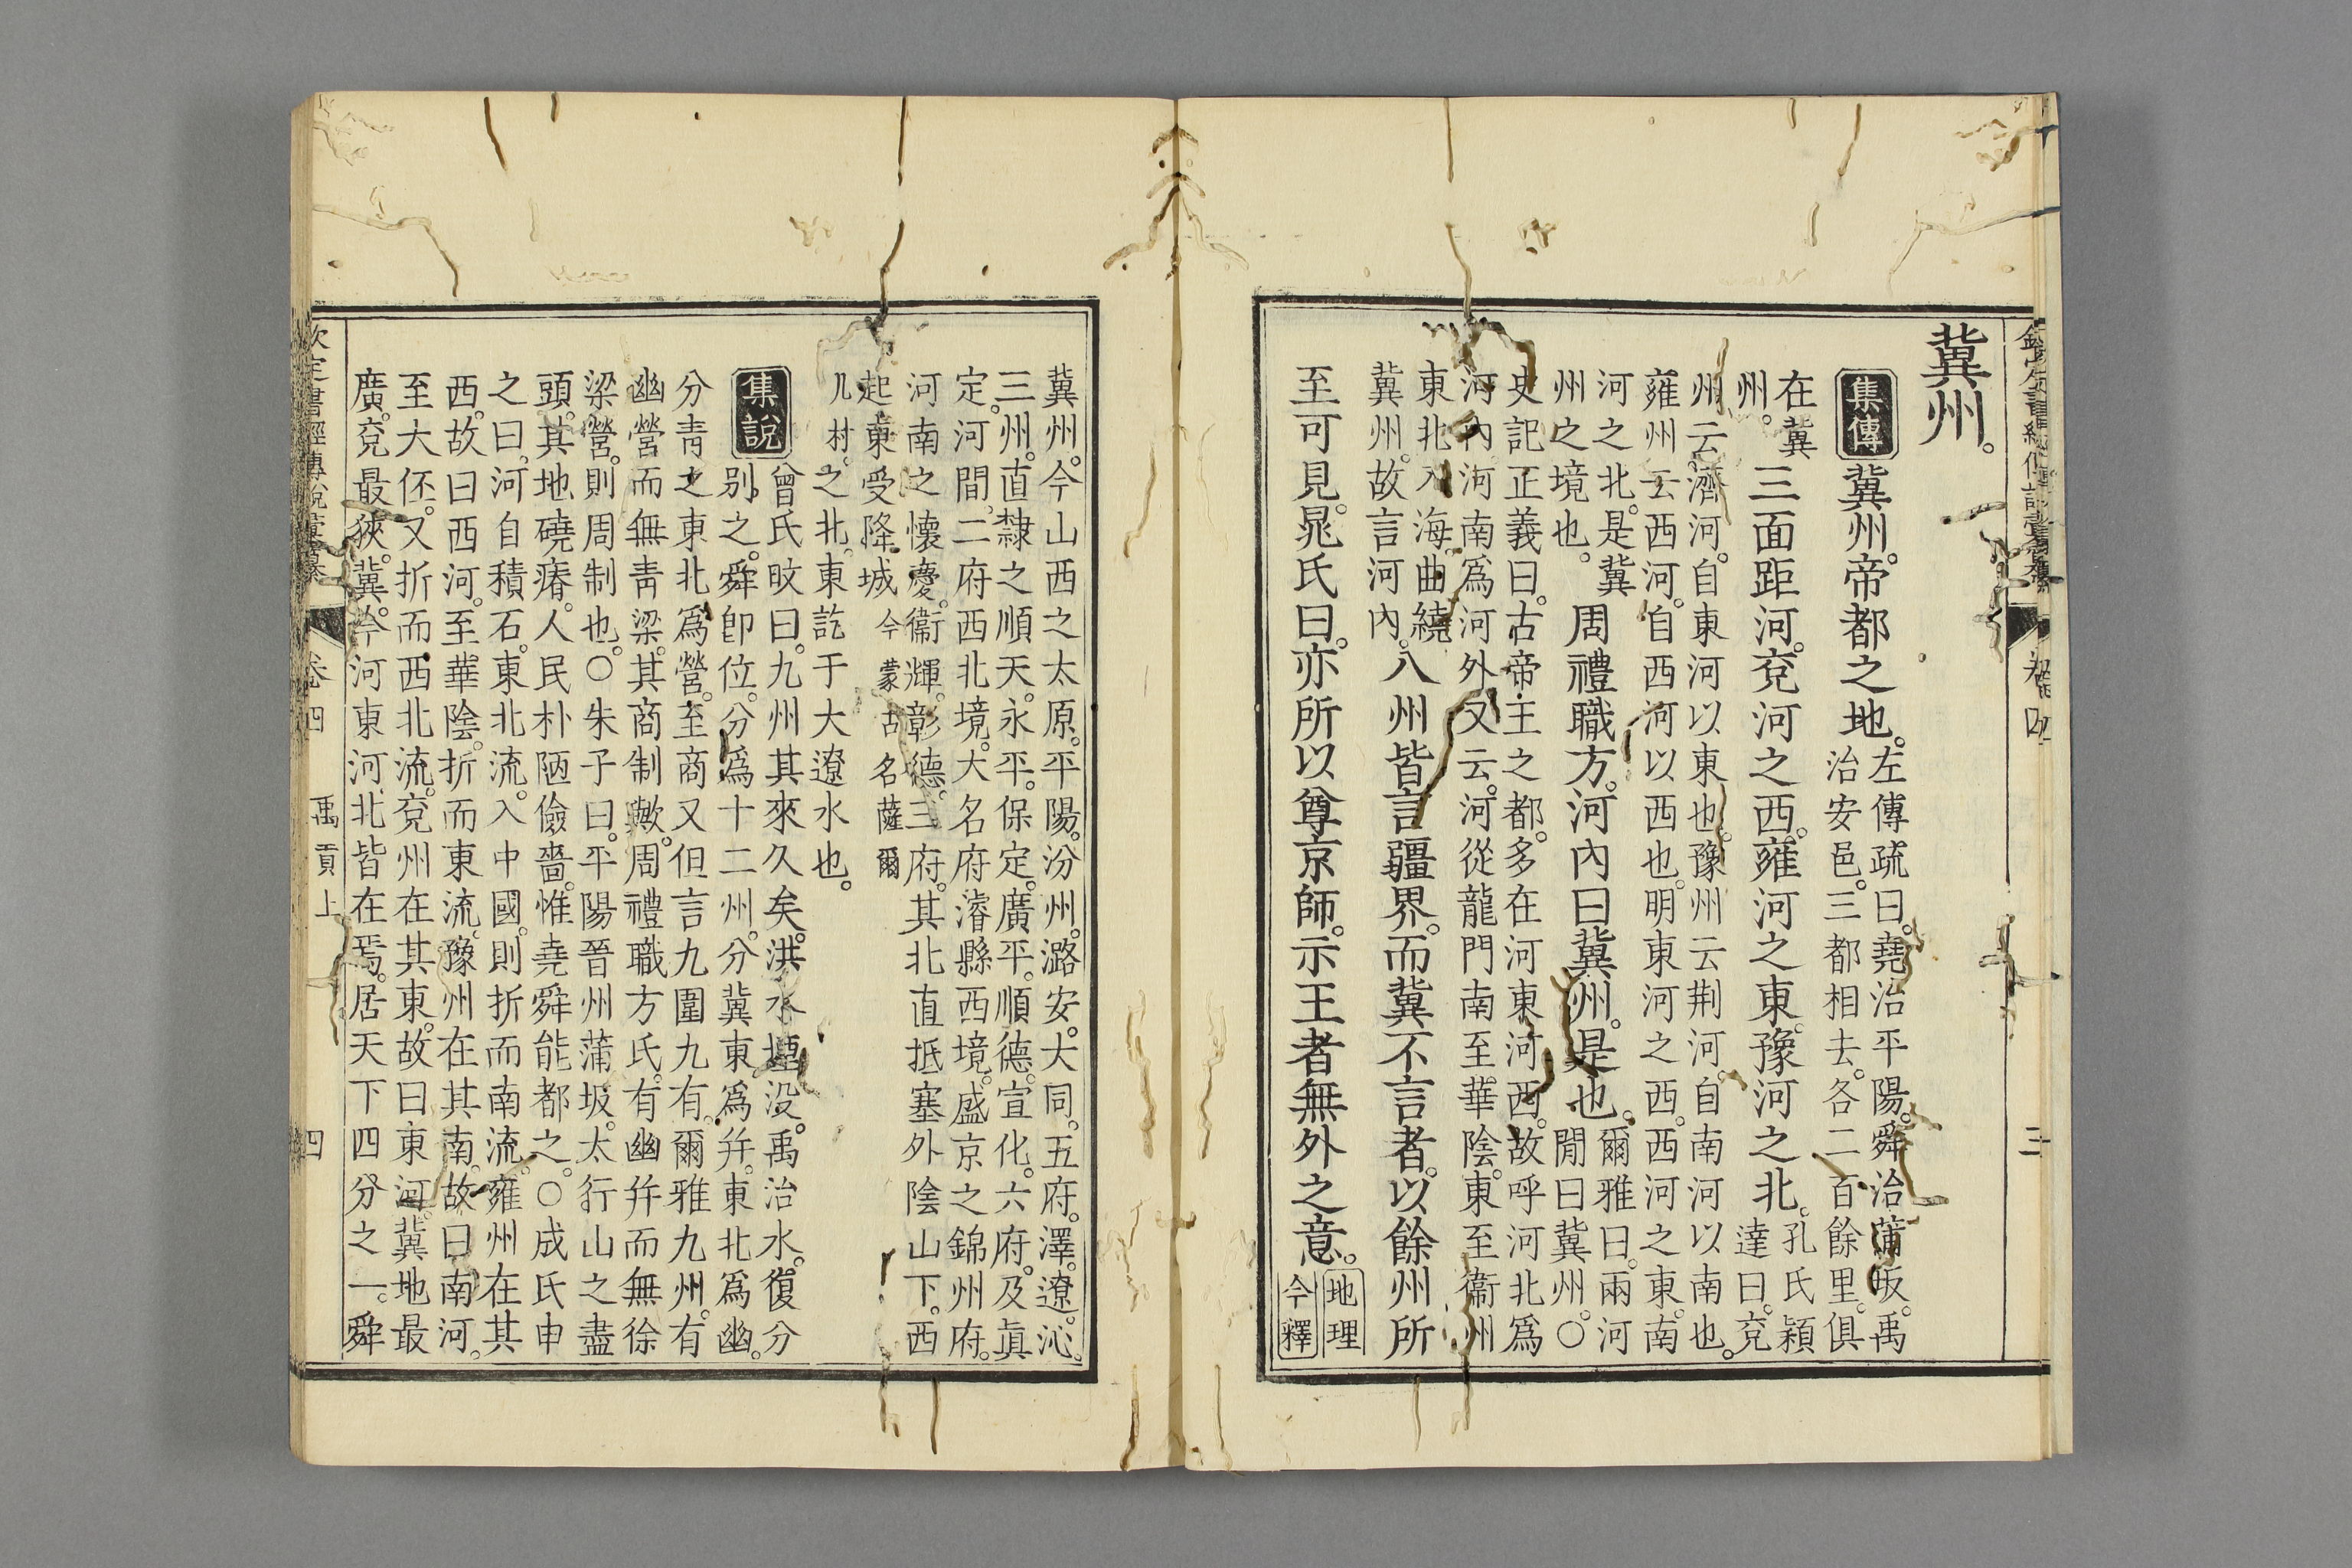 冀州。
集傳
冀州。帝都之地。左傳疏曰。堯治平陽。舜治蒲坂。禹
治安邑。三都相去。各二百餘里。俱
在冀
州。
三面距河。兗河之西。雍河之東。豫河之北。孔氏穎
達曰。兗
州云。濟河。自東河以東也。豫州云荆河。自南河以南也。
雍州云西河。自西河以西也。明東河之西。西河之東。南
河之北。是冀
州之境也。
周禮職方。河內曰冀州。是也。爾雅曰。兩河
閒曰冀州。○
史記正義曰。古帝王之都。多在河東河西。故呼河北爲
河內河南爲河外又云。河從龍門南至華陰。東至衞州
東北入海。曲繞
冀州。故言河內。
八州皆言疆界。而冀不言者。以餘州所
至可見。晁氏曰。亦所以尊京師。示王者無外之意。
地理
今釋
冀州。今山西之太原。平陽。汾州。潞安。大同。五府。澤。遼。沁。
三州。直隸之順天。永平。保定。廣平。順德。宣化。六府。及眞
定。河間。二府西北境。大名府濬縣西境。盛京之錦州府。
河南之懷慶。衞輝。彰德。三府。其北直抵塞外陰山下。西
起東受降城
今蒙古名薩爾
几村。
之北。東訖于大遼水也。
集說
曾氏旼曰。九州其來久矣。洪水堙没。禹治水。復分
别之。舜卽位。分爲十二州。分冀東爲幷。東北爲幽。
分靑之東北爲營。至商又但言九圍九有。爾雅九州。有
幽營而無靑梁。其商制歟。周禮職方氏。有幽幷而無徐
梁營。則周制也。○朱子曰。平陽晉州蒲坂。太行山之盡
頭。其地磽瘠。人民朴陋儉嗇。惟堯舜能都之。○成氏申
之曰。河自積石。東北流。入中國。則折而南流。雍州在其
西。故曰西河。至華陰。折而東流。豫州在其南。故曰南河。
至大伾。又折而西北流。兗州在其東。故曰東河。冀地最
廣。兗最狹。冀。今河東河北皆在焉。居天下四分之一。舜
欽定書經傳說彙纂
卷四
禹貢上
四